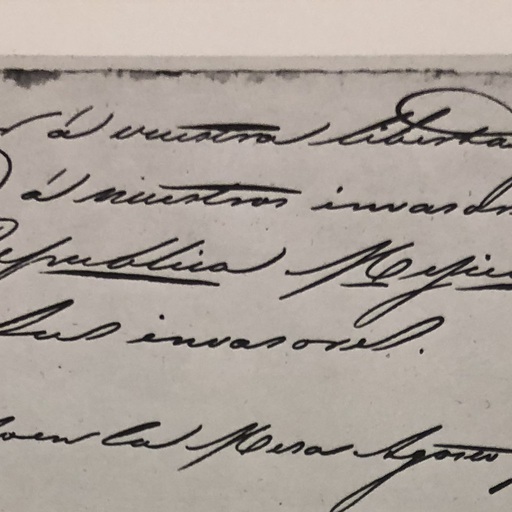 á nuestra liberta
á nuestros invasor
Republica Mejic
sus invasores.
en la Mesa Agosto